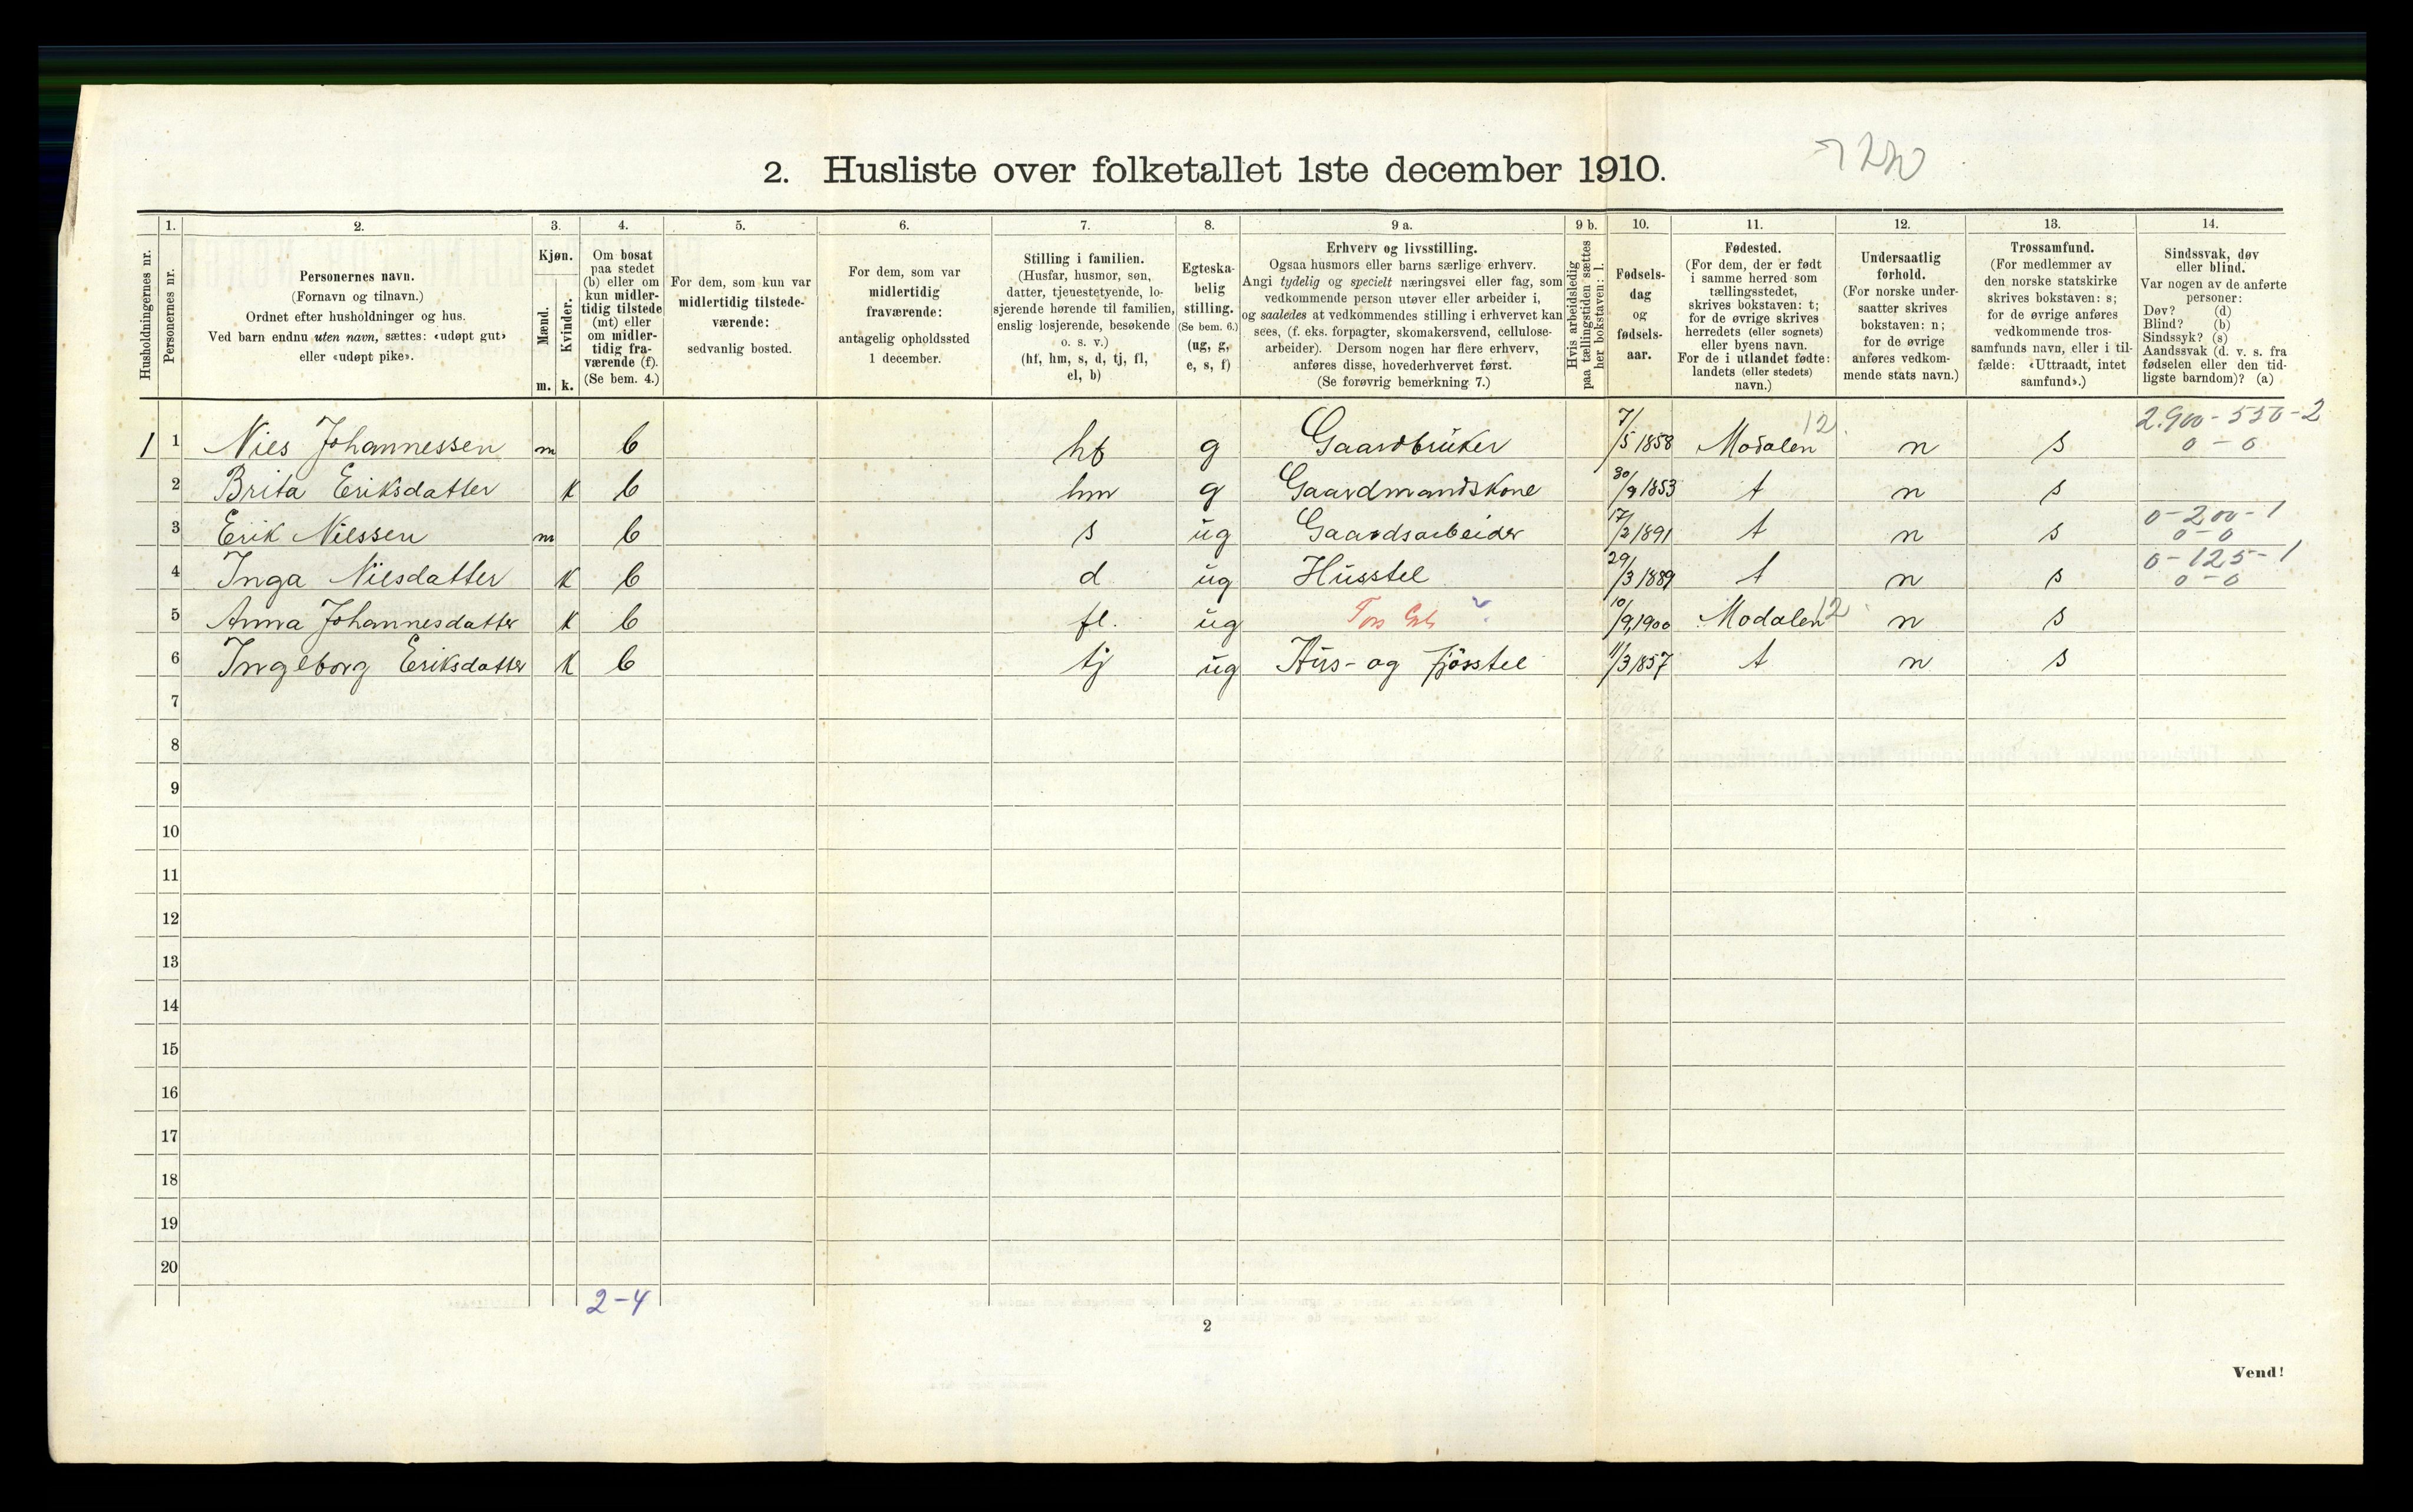 2. Husliste over folketallet 1ste december 1910.
1. 2. 3. 4. 5. 6. 7. 8. 9 a. 9 b. 10. 11. 12. 13. 14.
Husholdningernes nr.
Personernes nr.
Personernes navn.
(Fornavn og tilnavn.)
Ordnet efter husholdninger og hus.
Ved barn endnu uten navn, sættes: «udøpt gut»
eller «udøpt pike».
Kjøn.
Mænd.
Kvinder.
m. k.
Om bosat
paa stedet
(b) eller om
kun midler-
tidig tilstede
(mt) eller
om midler-
tidig fra-
værende (f).
(Se bem. 4.)
For dem, som kun var
midlertidig tilstede-
værende:
sedvanlig bosted.
For dem, som var
midlertidig
fraværende:
antagelig opholdssted
1 december.
Stilling i familien.
(Husfar, husmor, søn,
datter, tjenestetyende, lo-
sjerende hørende til familien,
enslig losjerende, besøkende
o. s. v.)
(hf, hm, s, d, tj, fl,
el, b)
Egteska-
belig
stilling.
(Se bem. 6.)
(ug, g,
e, s, f)
Erhverv og livsstilling.
Ogsaa husmors eller barns særlige erhverv.
Angi tydelig og specielt næringsvei eller fag, som
vedkommende person utøver eller arbeider i,
og saaledes at vedkommendes stilling i erhvervet kan
sees, (f. eks. forpagter, skomakersvend, cellulose-
arbeider). Dersom nogen har flere erhverv,
anføres disse, hovederhvervet først.
(Se forøvrig bemerkning 7.)
Hvis arbeidsledig
paa tællingstiden sættes
her bokstaven: l.
Fødsels-
dag
og
fødsels-
aar.
Fødested.
(For dem, der er født
i samme herred som
tællingsstedet,
skrives bokstaven: t;
for de øvrige skrives
herredets (eller sognets)
eller byens navn.
For de i utlandet fødte:
landets (eller stedets)
navn.)
Undersaatlig
forhold.
(For norske under-
saatter skrives
bokstaven: n;
for de øvrige
anføres vedkom-
mende stats navn.)
Trossamfund.
(For medlemmer av
den norske statskirke
skrives bokstaven: s;
for de øvrige anføres
vedkommende tros-
samfunds navn, eller i til-
fælde: «Uttraadt, intet
samfund».)
Sindssvak, døv
eller blind.
Var nogen av de anførte
personer:
Døv? (d)
Blind? (b)
Sindssyk? (s)
Aandssvak (d. v. s. fra
fødselen eller den tid-
ligste barndom)? (a)
1 1 Nils Johannessen m b hf g Gaardbruker 7/5 1858 Modalen 12 n s 2.900-550-2
0-0
2 Brita Eriksdatter k b hm g Gaardmandskone 30/9 1853 t n s
3 Erik Nilssen m b s ug Gaardsarbeider 17/2 1891 t n s 0-200-1
0-0
4 Inga Nilsdatter k b d ug Husstel 29/3 1889 t n s 0-125-1
0-0
5 Anna Johannesdatter k b fl. ug 10/9 1900 Modalen 12 n s
6 Ingeborg Eriksdatter k b tj ug Hus- og fjösstel 11/3 1857 t n s
7
8
9
10
11
12
13
14
15
16
17
18
19
20
2-4
2
Vend!